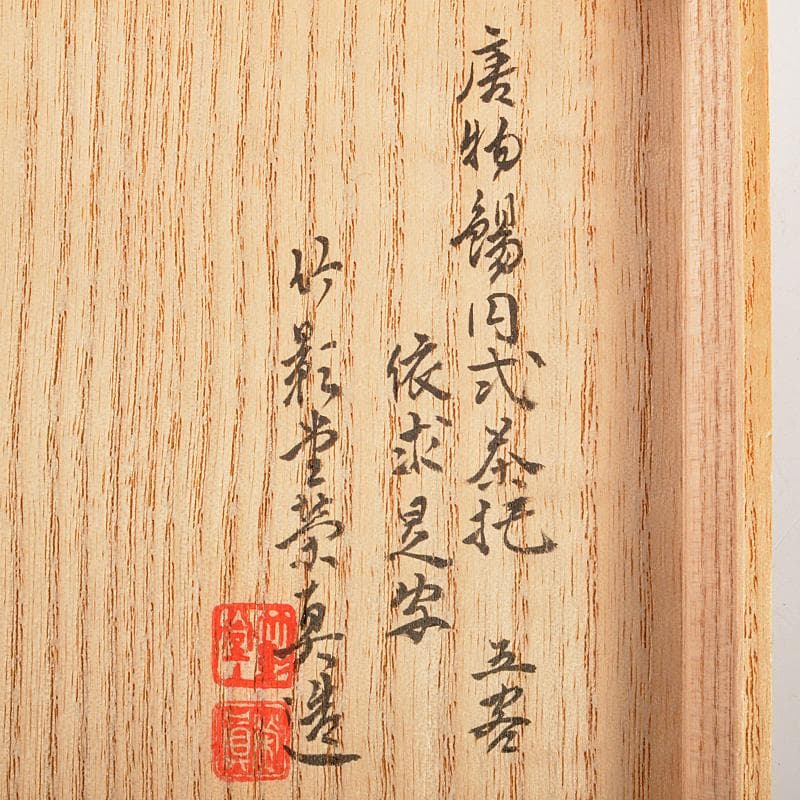 唐物錫円式茶托 五客
依求是写
竹影堂榮真造